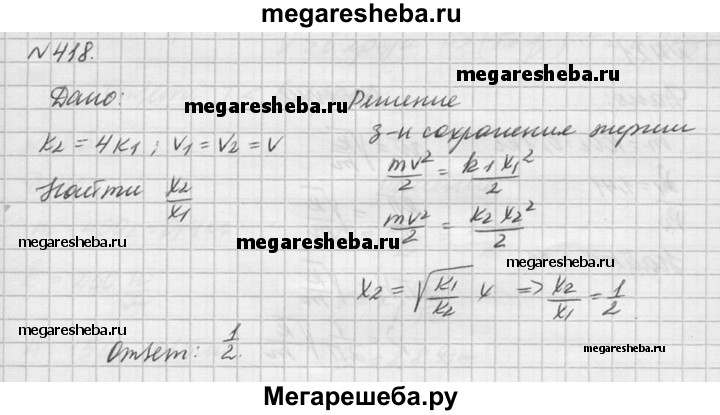 megaresheba.ru
№418.
megaresheba.ru
Дано: megaresheba.ru Решение
з-н сохранение энергии
k2 = 4k1 ; v1 = v2 = v
mv²/2 = k1x1²/2
Найти x2/x1
mv²/2 = k2x2²/2
megaresheba.ru megaresheba.ru
megaresheba.ru
x2 = √(k1/k2) x => x2/x1 = 1/2
megaresheba.ru
Ответ: 1/2.
megaresheba.ru
Мегарешеба.ру